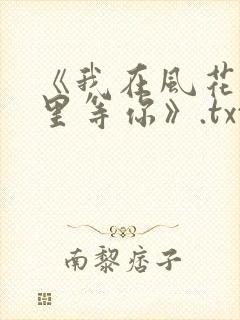 《我在風花
里等你》.tx
南黎痞子